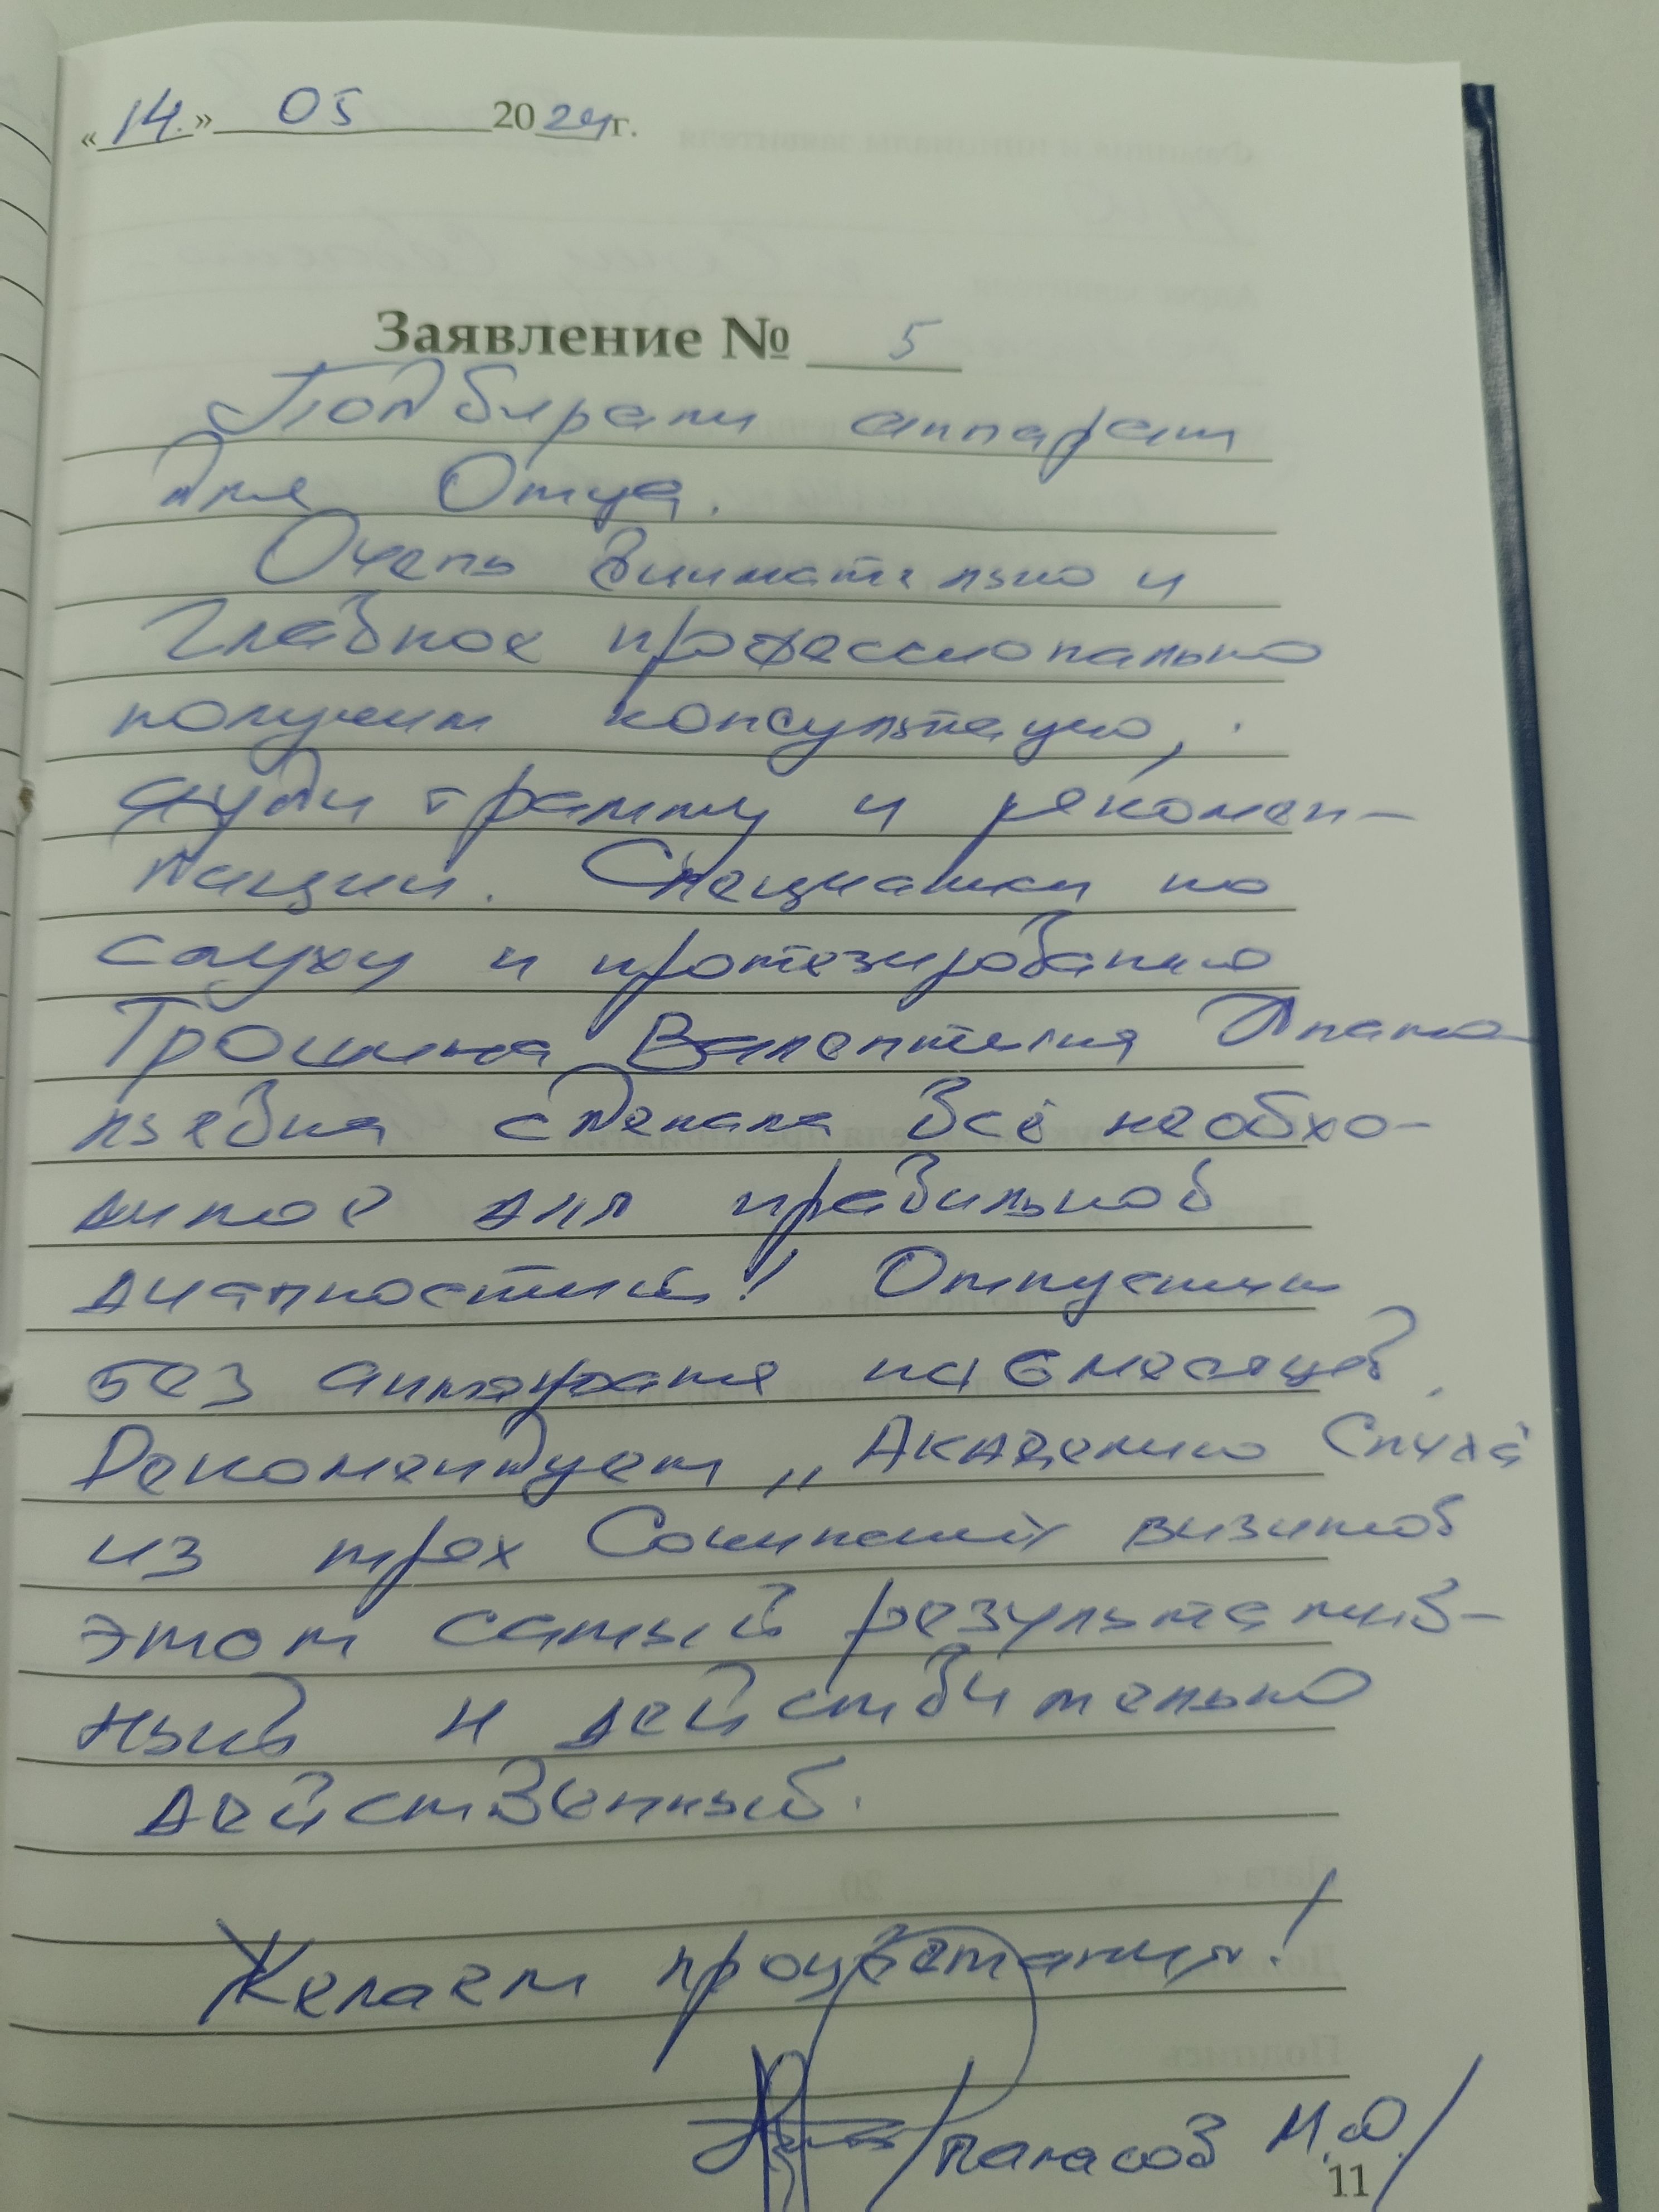 «14.» 05 2024г.
Заявление № 5
Подбирали аппарат
для Отца.
Очень внимательно и
главное профессионально
получили консультацию,
аудиограмму и рекомен-
дации. Специалист по
слуху и протезированию
Трошина Валентина Анато-
льевна сделала всё необхо-
димое для правильной
диагностики! Отпустили
без аппарата на 6 месяцев.
Рекомендуем „Академию Слуха"
из трех Сочинских визитов
этот самый результатив-
ный и действительно
действенный.
Желаем процветания!
М.Ю./
11